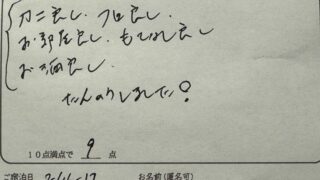 カニ良し、フロ良し、
お部屋良し、もてなし良し
お酒良し、
たんのうしました!
10点満点で 9 点
ご宿泊日
お名前(匿名可)